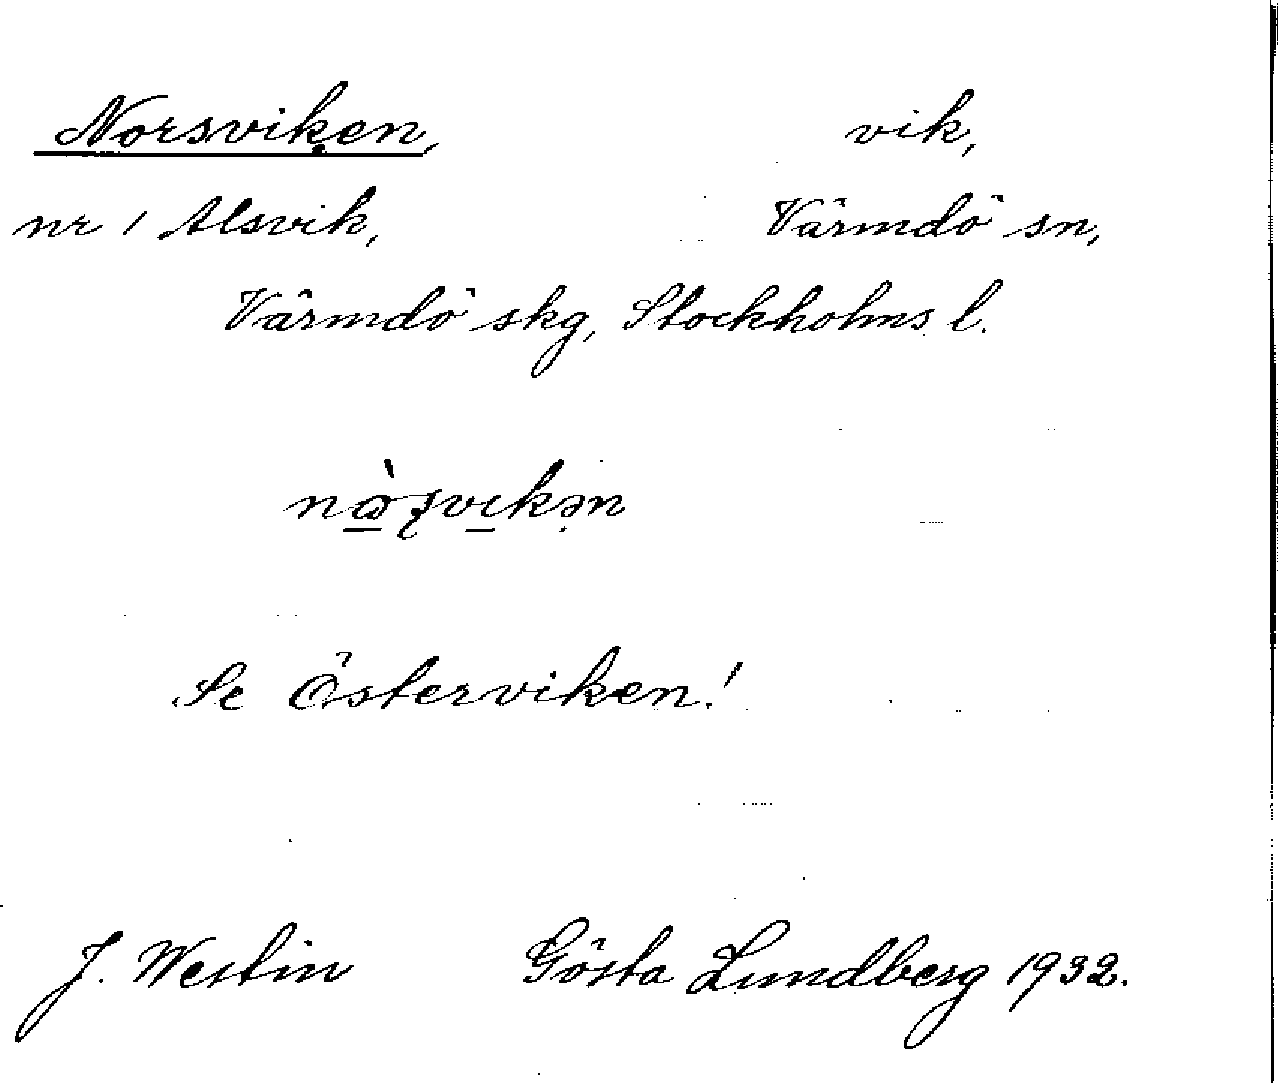 Norsviken, vik,
nr 1 Alsvik, Värmdö sn,
Värmdö skg, Stockholms l.
Se Österviken!
J. Westin Gösta Lundberg 1932.